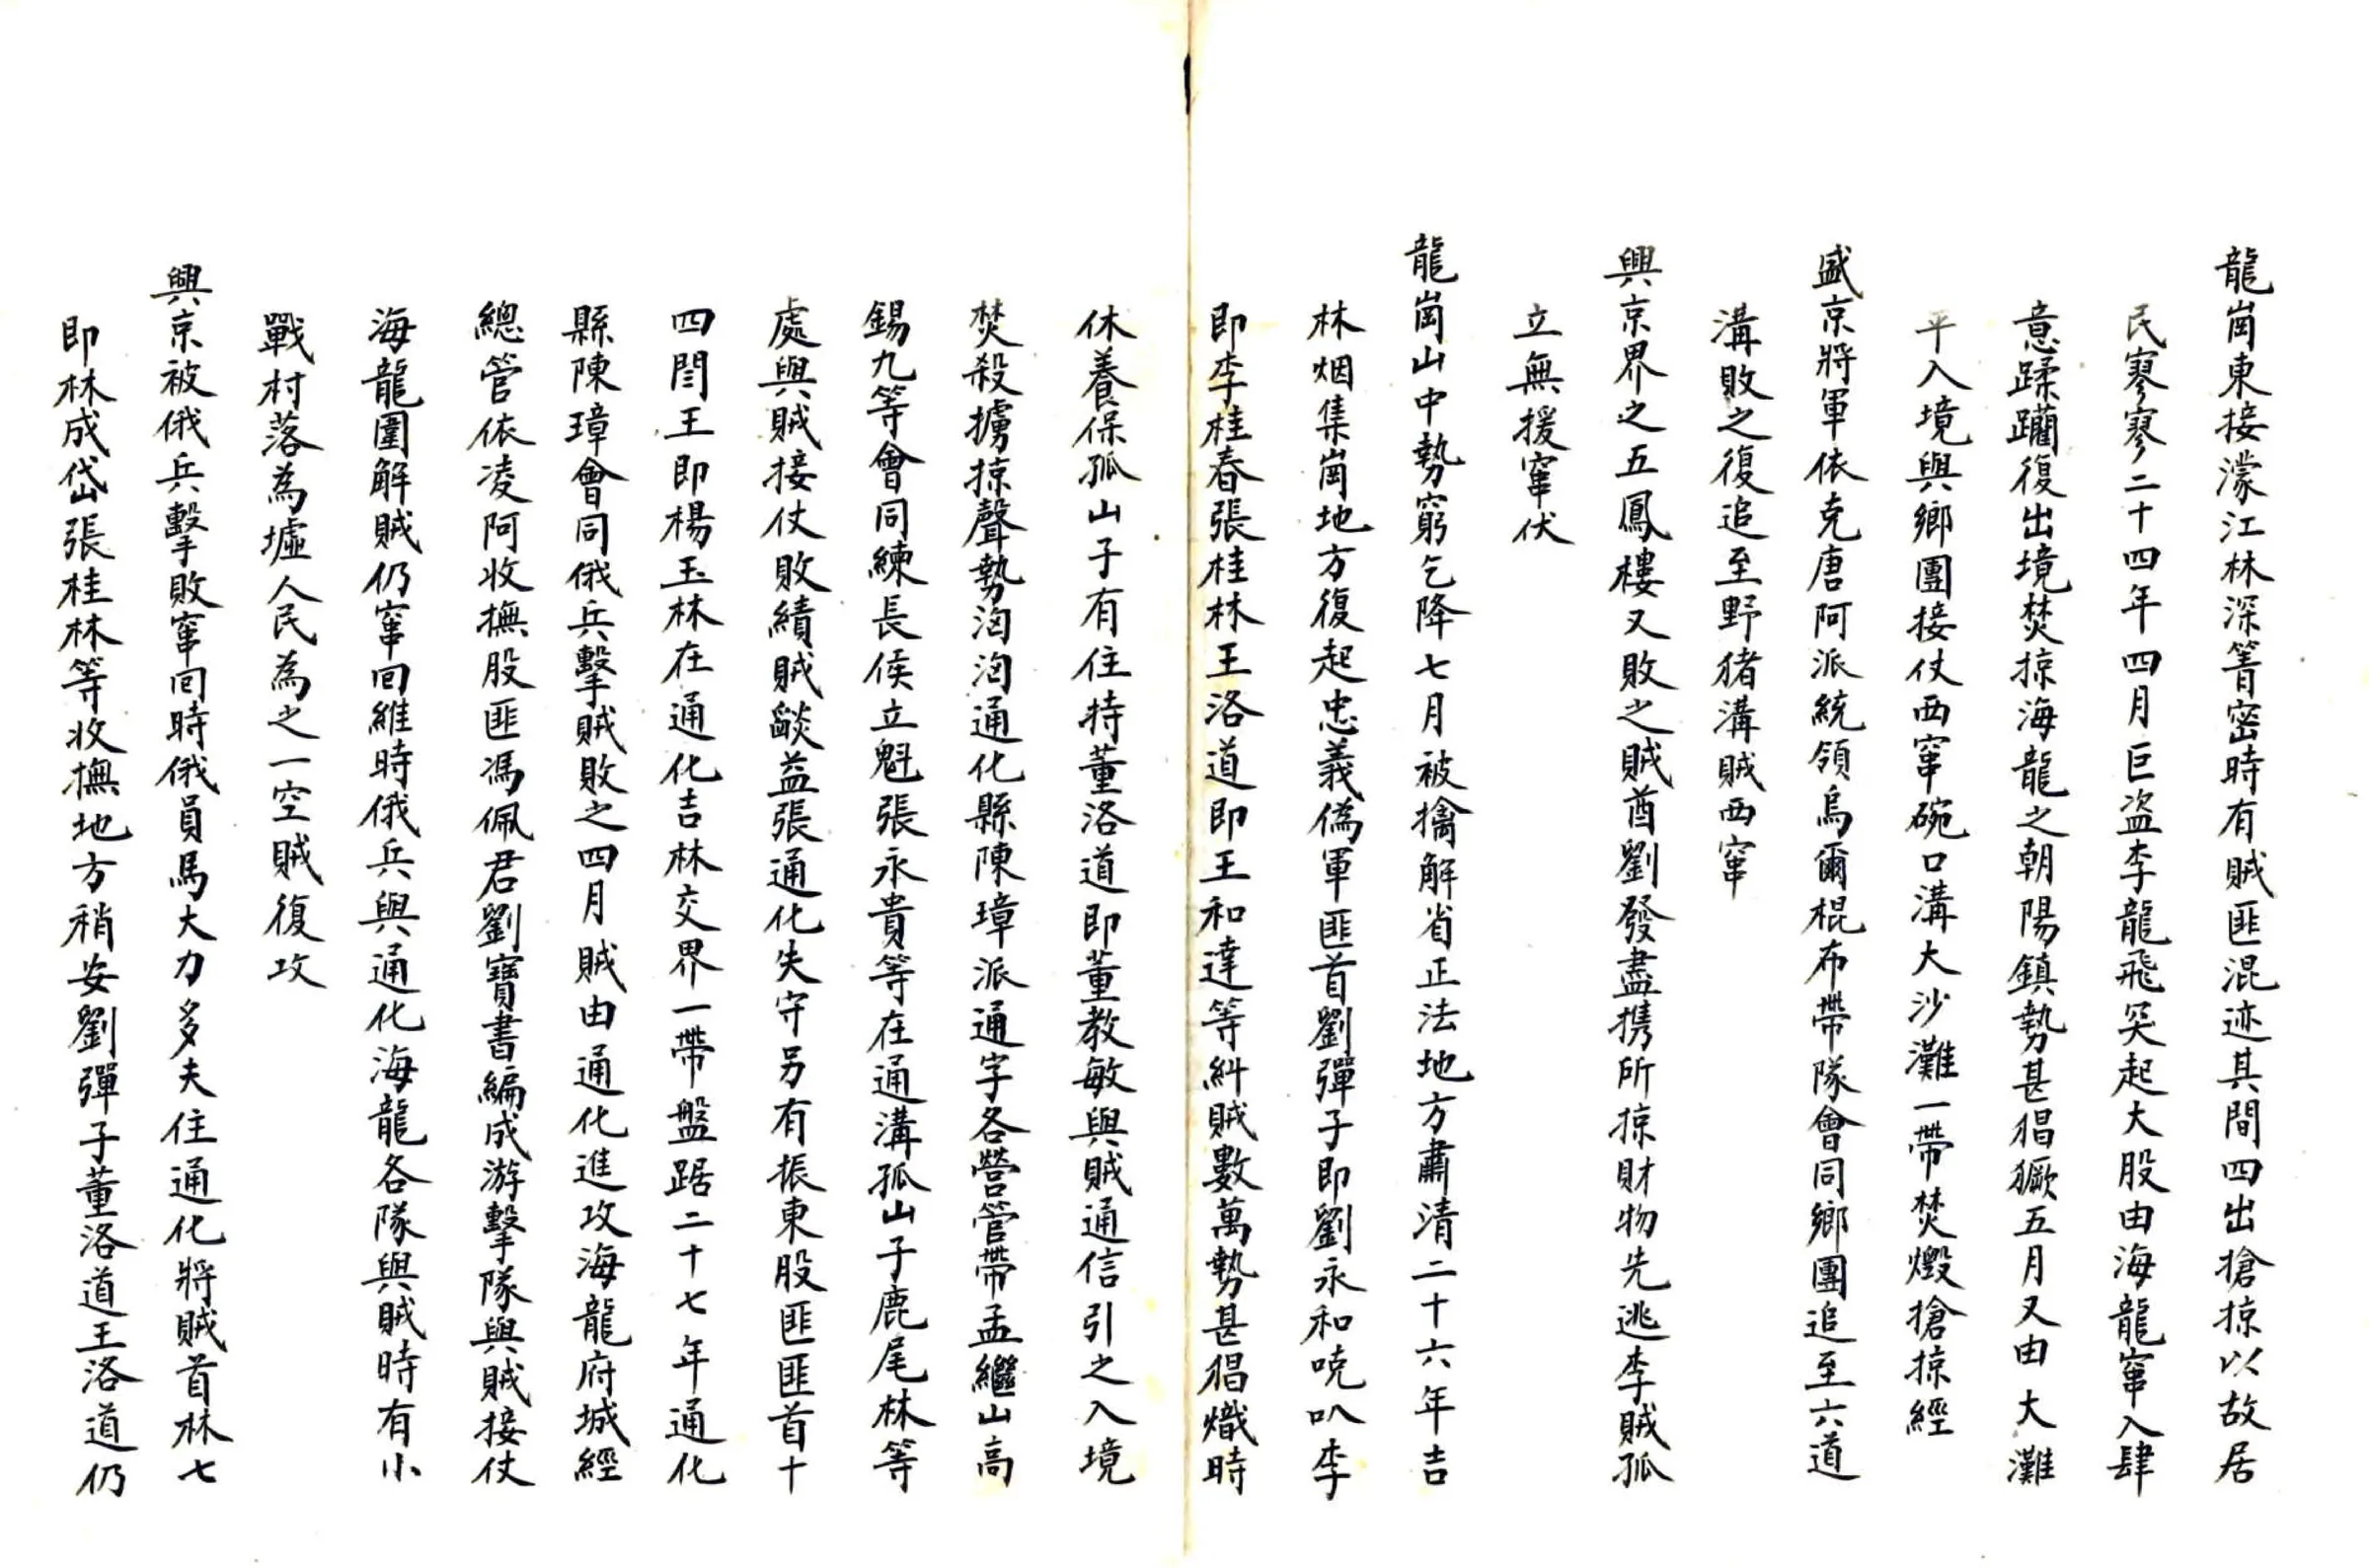 龍崗東接濛江林深箐密時有賊匪混迹其間四出搶掠以故居
民寥寥二十四年四月巨盜李龍飛突起大股由海龍竄入肆
意蹂躪復出境焚掠海龍之朝陽鎮勢甚猖獗五月又由大灘
平入境與鄉團接仗西竄碗口溝大沙灘一帶焚燬搶掠經
盛京將軍依克唐阿派統領烏爾棍布帶隊會同鄉團追至六道
溝敗之復追至野猪溝賊西竄
興京界之五鳳樓又敗之賊酋劉發盡携所掠財物先逃李賊孤
立無援竄伏
龍崗山中勢窮乞降七月被擒解省正法地方肅清二十六年吉
林烟集崗地方復起忠義偽軍匪首劉彈子即劉永和唍叭李
即李桂春張桂林王洛道即王和達等糾賊數萬勢甚猖熾時
休養保孤山子有住持董洛道即董教敏與賊通信引之入境
焚殺擄掠聲勢洶洶通化縣陳璋派通字各營管帶孟繼山高
錫九等會同練長侯立魁張永貴等在通溝孤山子鹿尾林等
處與賊接仗敗績賊燄益張通化失守另有振東股匪匪首十
四閆王即楊玉林在通化吉林交界一帶盤踞二十七年通化
縣陳璋會同俄兵擊賊敗之四月賊由通化進攻海龍府城經
總管依凌阿收撫股匪馮佩君劉寶書編成游擊隊與賊接仗
海龍圍解賊仍竄回維時俄兵與通化海龍各隊與賊時有小
戰村落為墟人民為之一空賊復攻
興京被俄兵擊敗竄回時俄員馬大力多夫住通化將賊首林七
即林成岱張桂林等收撫地方稍安劉彈子董洛道王洛道仍